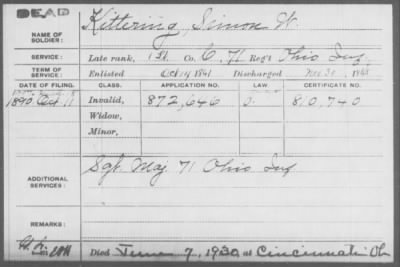 DEAD
NAME OF SOLDIER: Kittering, Simon W.
SERVICE: Late rank, Co. C, 71 Reg't Ohio Inf
TERM OF SERVICE: Enlisted Oct 14 1861 Discharged Nov 30, 186
DATE OF FILING. CLASS. APPLICATION NO. LAW. CERTIFICATE NO.
1890 Oct 11 Invalid, 872,646 810,740
Widow,
Minor,
ADDITIONAL SERVICES: Sgt. Maj 71 Ohio Inf
REMARKS:
Died June 7, 1920 at Cincinnati Oh